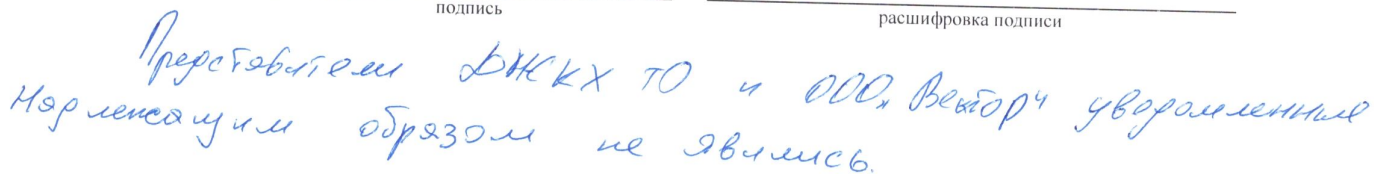 подпись расшифровка подписи
Представители ДЖКХ ТО и ООО „Вектор“ уведомленные
Надлежащим образом не явились.